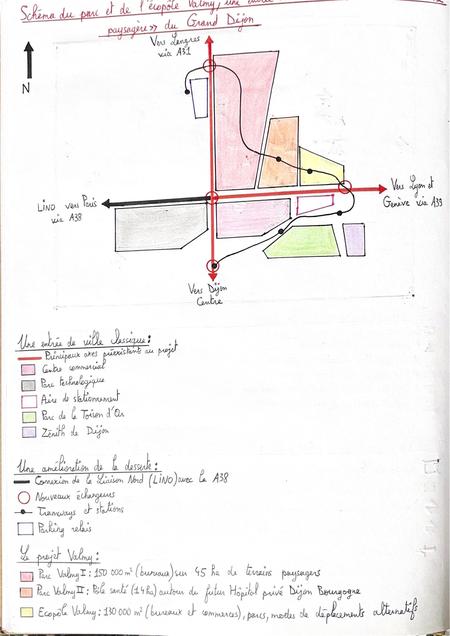 Schéma du parc et de l'écopole Valmy, une entrée
paysagère» du Grand Dijon
Vers Langres
via A31
N
LiNO vers Paris
via A38
Vers Lyon et
Genève via A39
Vers Dijon
Centre
Une entrée de ville classique:
Principaux axes préexistants au projet
Centre commercial
Parc technologique
Aire de stationnement
Parc de la Toison d'Or
Zénith de Dijon
Une amélioration de la desserte:
Connexion de la Liaison Nord (LiNO) avec la A38
Nouveaux échangeurs
Tramways et stations
Parking relais
Le projet Valmy:
Parc Valmy I: 150 000 m² (bureaux) sur 45 ha de terrains paysagers
Parc Valmy II: Pôle santé (14 ha) autour du futur Hôpital privé Dijon Bourgogne
Ecopôle Valmy: 130 000 m² (bureaux et commerces), parcs, modes de déplacements alternatifs